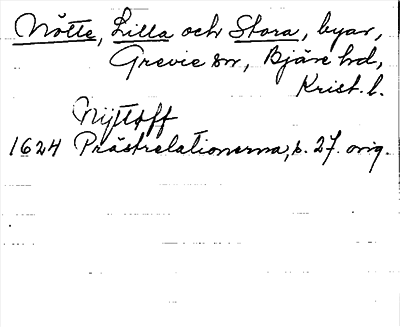 Nötte, Lilla och Stora, byar,
Grevie sn, Bjäre hd,
Krist. l.
Nijttoff
1624 Prästrelationerna, s. 27. orig.